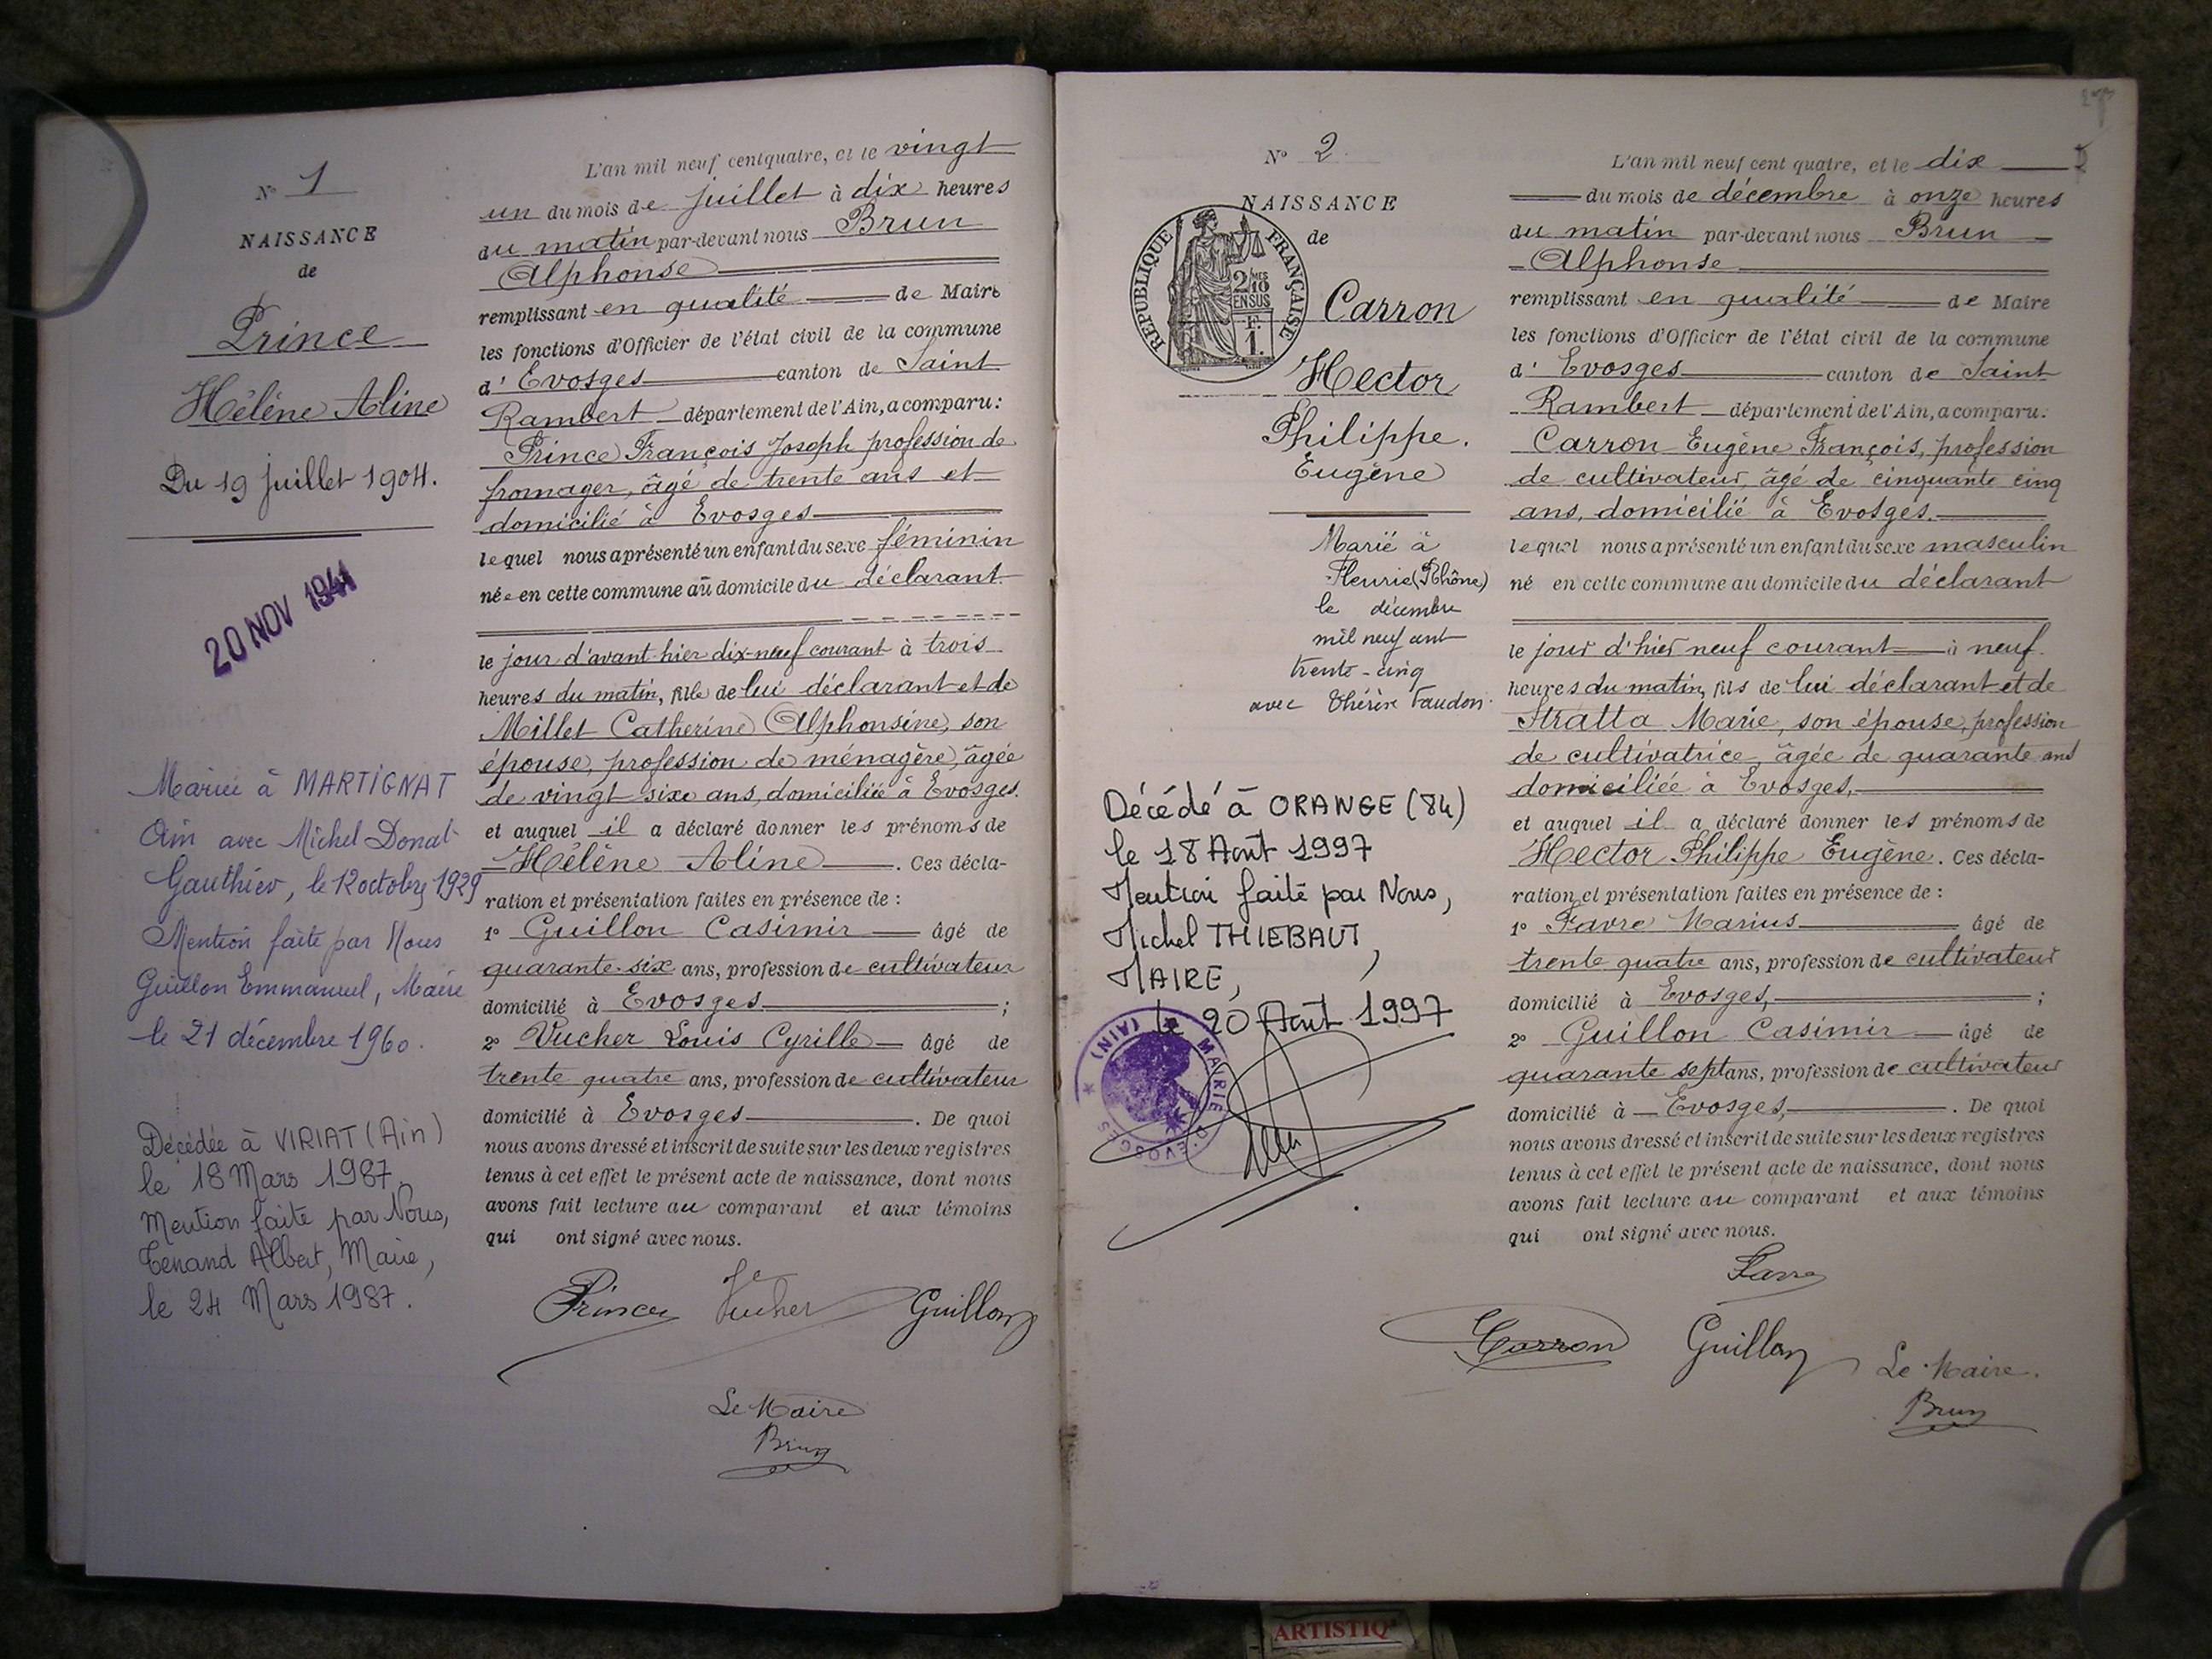 N° 1
NAISSANCE
de
Prince
Hélène Aline
Du 19 juillet 1904.
20 NOV 1941
Mariée à MARTIGNAT
Ain avec Michel Donat
Gauthier, le 12 octobre 1929
Mention faite par Nous
Guillon Emmanuel, Maire
le 21 décembre 1960.
Décédée à VIRIAT (Ain)
le 18 Mars 1987.
Mention faite par Nous,
Tenand Albert, Maire,
le 24 Mars 1987.
L'an mil neuf cent quatre, et le vingt
un du mois de juillet à dix heures
du matin par-devant nous Brun
Alphonse
remplissant en qualité de Maire
les fonctions d'Officier de l'état civil de la commune
d' Evosges canton de Saint
Rambert département de l'Ain, a comparu:
Prince François Joseph profession de
fromager, âgé de trente ans et
domicilié à Evosges
lequel nous a présenté un enfant du sexe féminin
née en cette commune au domicile du déclarant
le jour d'avant-hier dix-neuf courant à trois
heures du matin, fille de lui déclarant et de
Millet Catherine Alphonsine, son
épouse, profession de ménagère, âgée
de vingt six ans, domiciliée à Evosges.
et auquel il a déclaré donner les prénoms de
Hélène Aline. Ces décla-
ration et présentation faites en présence de :
1° Guillon Casimir âgé de
quarante-six ans, profession de cultivateur
domicilié à Evosges ;
2° Vucher Louis Cyrille âgé de
trente quatre ans, profession de cultivateur
domicilié à Evosges. De quoi
nous avons dressé et inscrit de suite sur les deux registres
tenus à cet effet le présent acte de naissance, dont nous
avons fait lecture au comparant et aux témoins
qui ont signé avec nous.
Prince Vucher Guillon
Le Maire
Brun
N° 2
NAISSANCE
de
RÉPUBLIQUE FRANÇAISE
2/10 MES
EN SUS
F.
1.
Carron
Hector
Philippe.
Eugène
Marié à
Fleurie (Rhône)
le décembre
mil neuf cent
trente-cinq
avec Thérèse Faudon.
Décédé à ORANGE (84)
le 18 Août 1997
Mention faite par Nous,
Michel THIEBAUT,
MAIRE,
le 20 Août 1997
MAIRIE D'EVOSGES (AIN)
L'an mil neuf cent quatre, et le dix
du mois de décembre à onze heures
du matin par-devant nous Brun
Alphonse
remplissant en qualité de Maire
les fonctions d'Officier de l'état civil de la commune
d' Evosges canton de Saint
Rambert département de l'Ain, a comparu:
Carron Eugène François, profession
de cultivateur, âgé de cinquante cinq
ans, domicilié à Evosges.
lequel nous a présenté un enfant du sexe masculin
né en cette commune au domicile du déclarant
le jour d'hier neuf courant à neuf
heures du matin, fils de lui déclarant et de
Stratta Marie, son épouse, profession
de cultivatrice, âgée de quarante ans
domiciliée à Evosges,
et auquel il a déclaré donner les prénoms de
Hector Philippe Eugène. Ces décla-
ration et présentation faites en présence de :
1° Favre Marius âgé de
trente quatre ans, profession de cultivateur
domicilié à Evosges, ;
2° Guillon Casimir âgé de
quarante sept ans, profession de cultivateur
domicilié à Evosges, . De quoi
nous avons dressé et inscrit de suite sur les deux registres
tenus à cet effet le présent acte de naissance, dont nous
avons fait lecture au comparant et aux témoins
qui ont signé avec nous.
Favre
Carron Guillon Le Maire.
Brun
ARTISTIQ